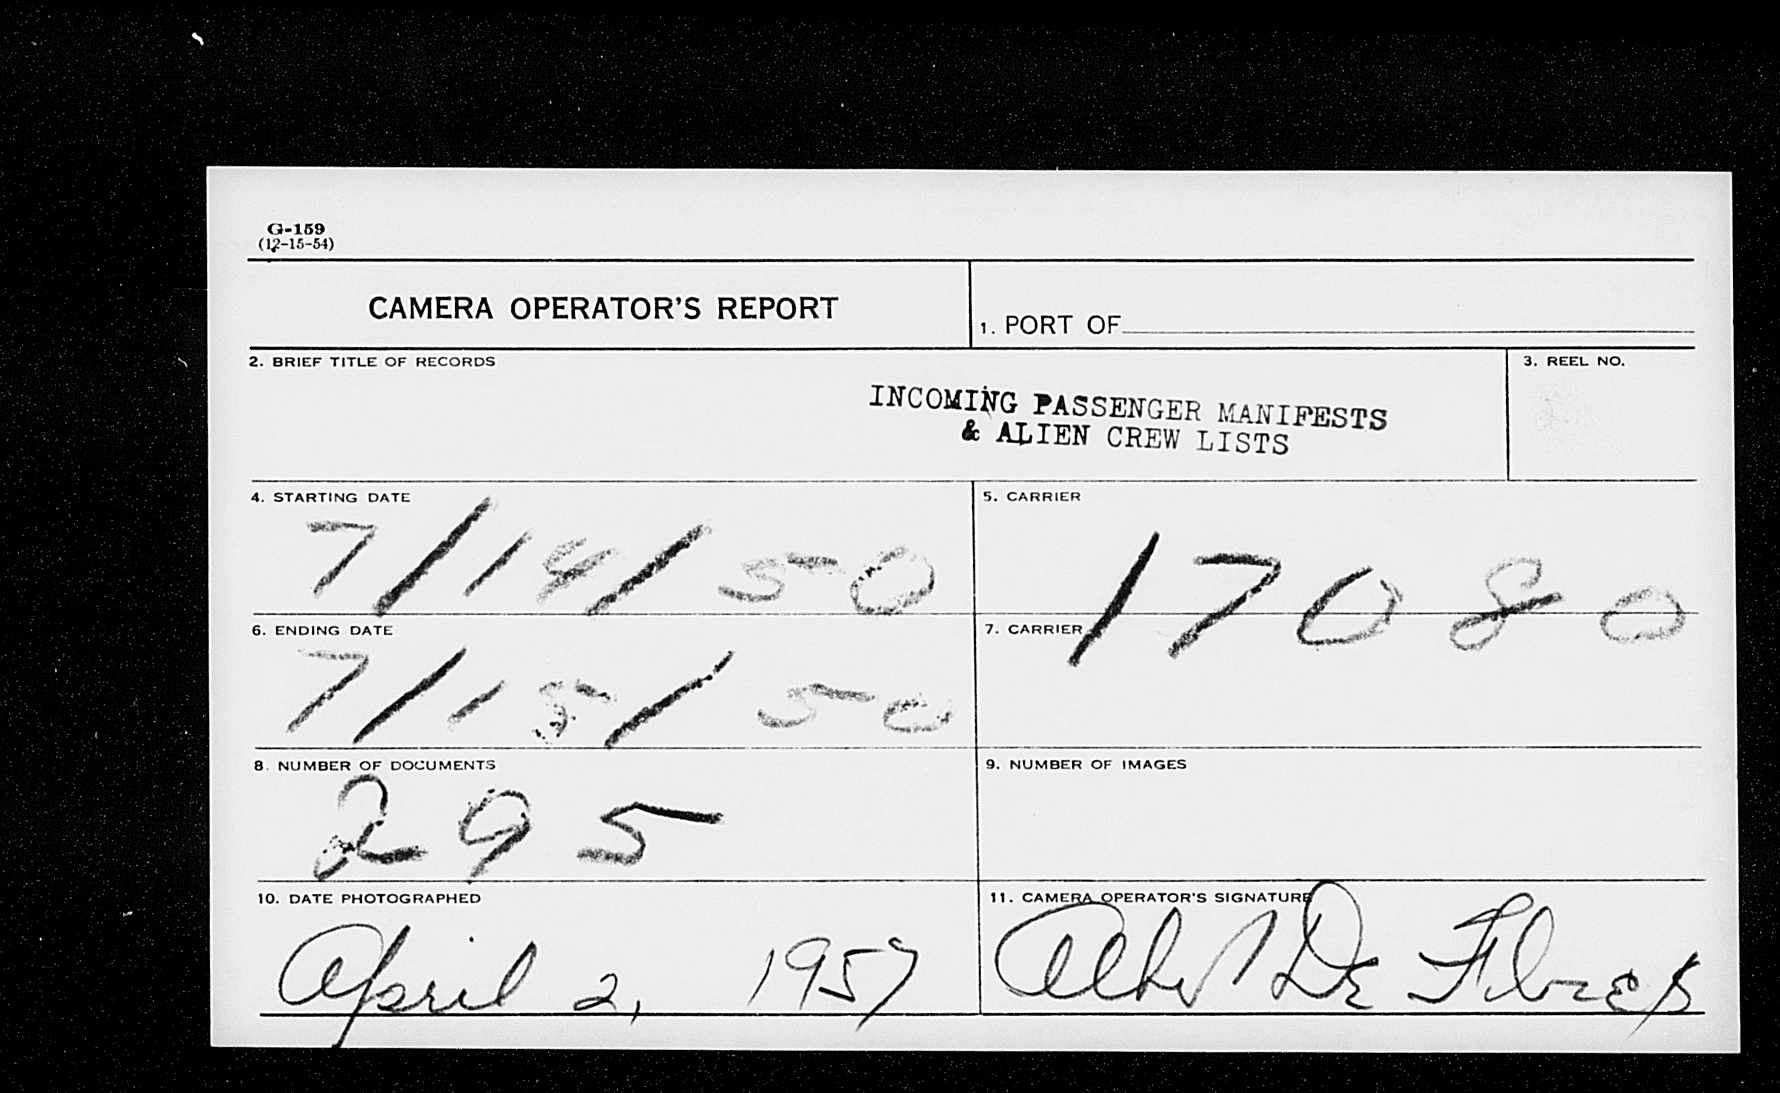 G-159
(12-15-54)
CAMERA OPERATOR'S REPORT
1. PORT OF
2. BRIEF TITLE OF RECORDS
INCOMING PASSENGER MANIFESTS
& ALIEN CREW LISTS
3. REEL NO.
4. STARTING DATE
7/14/50
5. CARRIER
17080
6. ENDING DATE
7/15/50
7. CARRIER
8. NUMBER OF DOCUMENTS
295
9. NUMBER OF IMAGES
10. DATE PHOTOGRAPHED
April 2, 1957
11. CAMERA OPERATOR'S SIGNATURE
De